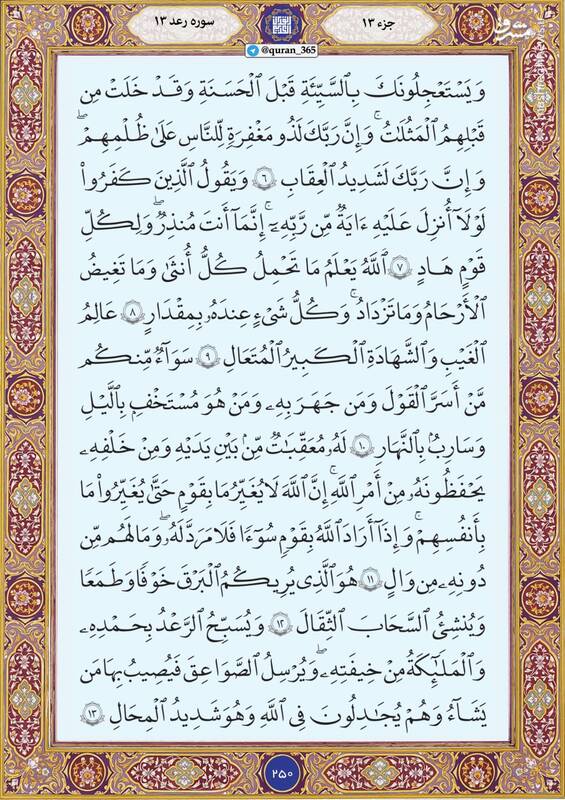 جزء ۱۳
سوره رعد ۱۳
@quran_365
مشرق
وَيَسْتَعْجِلُونَكَ بِٱلسَّيِّئَةِ قَبْلَ ٱلْحَسَنَةِ وَقَدْ خَلَتْ مِن
قَبْلِهِمُ ٱلْمَثُلَٰتُ ۗ وَإِنَّ رَبَّكَ لَذُو مَغْفِرَةٍ لِّلنَّاسِ عَلَىٰ ظُلْمِهِمْ ۖ
وَإِنَّ رَبَّكَ لَشَدِيدُ ٱلْعِقَابِ ۶ وَيَقُولُ ٱلَّذِينَ كَفَرُوا۟
لَوْلَآ أُنزِلَ عَلَيْهِ ءَايَةٌ مِّن رَّبِّهِۦٓ ۗ إِنَّمَآ أَنتَ مُنذِرٌ ۖ وَلِكُلِّ
قَوْمٍ هَادٍ ۷ ٱللَّهُ يَعْلَمُ مَا تَحْمِلُ كُلُّ أُنثَىٰ وَمَا تَغِيضُ
ٱلْأَرْحَامُ وَمَا تَزْدَادُ ۖ وَكُلُّ شَىْءٍ عِندَهُۥ بِمِقْدَارٍ ۸ عَٰلِمُ
ٱلْغَيْبِ وَٱلشَّهَٰدَةِ ٱلْكَبِيرُ ٱلْمُتَعَالِ ۹ سَوَآءٌ مِّنكُم
مَّنْ أَسَرَّ ٱلْقَوْلَ وَمَن جَهَرَ بِهِۦ وَمَنْ هُوَ مُسْتَخْفٍۭ بِٱلَّيْلِ
وَسَارِبٌۢ بِٱلنَّهَارِ ۱۰ لَهُۥ مُعَقِّبَٰتٌ مِّنۢ بَيْنِ يَدَيْهِ وَمِنْ خَلْفِهِۦ
يَحْفَظُونَهُۥ مِنْ أَمْرِ ٱللَّهِ ۗ إِنَّ ٱللَّهَ لَا يُغَيِّرُ مَا بِقَوْمٍ حَتَّىٰ يُغَيِّرُوا۟ مَا
بِأَنفُسِهِمْ ۗ وَإِذَآ أَرَادَ ٱللَّهُ بِقَوْمٍ سُوٓءًا فَلَا مَرَدَّ لَهُۥ ۚ وَمَا لَهُم مِّن
دُونِهِۦ مِن وَالٍ ۱۱ هُوَ ٱلَّذِى يُرِيكُمُ ٱلْبَرْقَ خَوْفًا وَطَمَعًا
وَيُنشِئُ ٱلسَّحَابَ ٱلثِّقَالَ ۱۲ وَيُسَبِّحُ ٱلرَّعْدُ بِحَمْدِهِۦ
وَٱلْمَلَٰٓئِكَةُ مِنْ خِيفَتِهِۦ وَيُرْسِلُ ٱلصَّوَٰعِقَ فَيُصِيبُ بِهَا مَن
يَشَآءُ وَهُمْ يُجَٰدِلُونَ فِى ٱللَّهِ وَهُوَ شَدِيدُ ٱلْمِحَالِ ۱۳
۲۵۰